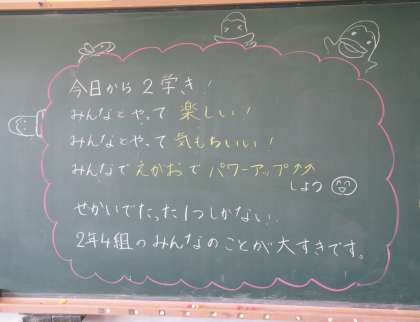 今日から2学き!
みんなとやって 楽しい!
みんなとやって 気もちいい!
みんなで えがおで パワーアップ↑↑
しよう
せかいでたった1つしかない.
2年4組のみんなのことが大すきです。